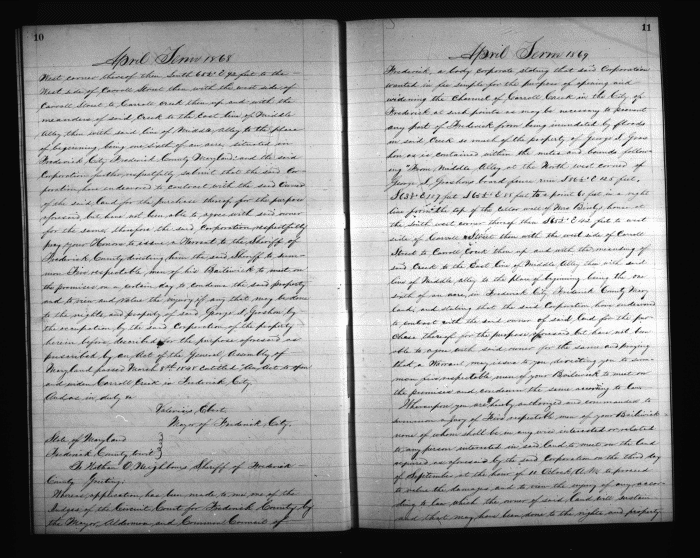 10
April Term 1868
West corner thereof then South 65½° E 92 feet to the
West side of Carroll Street then with the west side of
Carroll Street to Carroll creek then up and with the
meanders of said Creek to the East line of Middle
Alley then with said line of Middle Alley to the place
of beginning being one sixth of an acre, situated in
Frederick City Frederick County Maryland and the said
Corporation further respectfully submit that the said Cor-
poration have endeavored to contract with the said Owner
of the said Land for the purchase thereof for the purpose
aforesaid, but have not been able to agree with said owner
for the same, therefore the said Corporation respectfully
pray your Honor to issue a Warrant to the Sheriff of
Frederick County directing him the said Sheriff to sum-
mon Five respectable men of his Bailiwick to meet on
the premises on a certain day to condemn the said property
and to view and value the injury if any that may be done
to the rights and property of said George J. Groshon by
the occupation by the said Corporation of the property
herein before described for the purpose aforesaid as
prescribed by an Act of the General Assembly of
Maryland passed March 8th 1848 entitled An Act to open
and widen Carroll Creek in Frederick City.
And as in duty &c
Valerius Ebert
Mayor of Frederick City.
State of Maryland
Frederick County to wit
To Nathan O. Neighbors Sheriff of Frederick
County Greeting:
Whereas application has been made to me one of the
Judges of the Circuit Court for Frederick County by
the Mayor, Aldermen and Common Council of
11
April Term 1869
Frederick, a body corporate stating that said Corporation
wanted in fee simple for the purpose of opening and
widening the Channel of Carroll Creek in the City of
Frederick at such points as may be necessary to prevent
any part of Frederick from being inundated by floods
in said Creek so much of the property of George J. Gros
hon as is contained within the metes and bounds follow-
ing "From Middle Alley at the North west corner of
George J. Groshons board fence run
line from the top of the cellar wall of Mrs house at
the South west corner thereof then S 65½° E 92 feet to west
side of Carroll Street then with the west side of Carroll
Street to Carroll Creek then up and with the meanding of
said Creek to the East line of Middle Alley then with said
line of Middle Alley to the place of beginning being the one
sixth of an acre, in Frederick City Frederick County Mary
land, and stating that the said Corporation have endeavored
to contract with the said owner of said Land for the pur
chase thereof for the purpose aforesaid but have not been
able to agree with said owner for the same and praying
that a Warrant may issue to you directing you to sum-
mon five respectable men of your Bailiwick to meet on
the premises and condemn the same according to law
Whereupon you are hereby authorized and commanded to
summon a Jury of Five respectable men of your Bailiwick
none of whom shall be in any wise interested or related
to any person interested in said Land to meet on the Land
required as aforesaid by the said Corporation on the third day
of September at the hour of 11 O'clock A.M. to proceed
to value the damages and to view the injury if any accor-
ding to law which the owner of said Land will sustain
and that may have been done to the rights and property